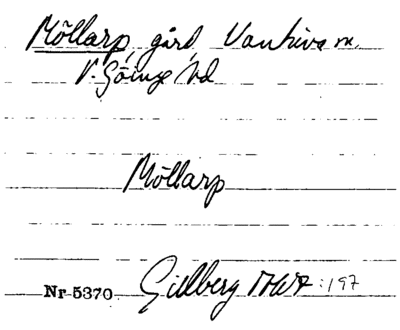 Möllarp, gård, Vankiva sn.
V. Göinge hd
Möllarp
Nr 5370 Gillberg :197